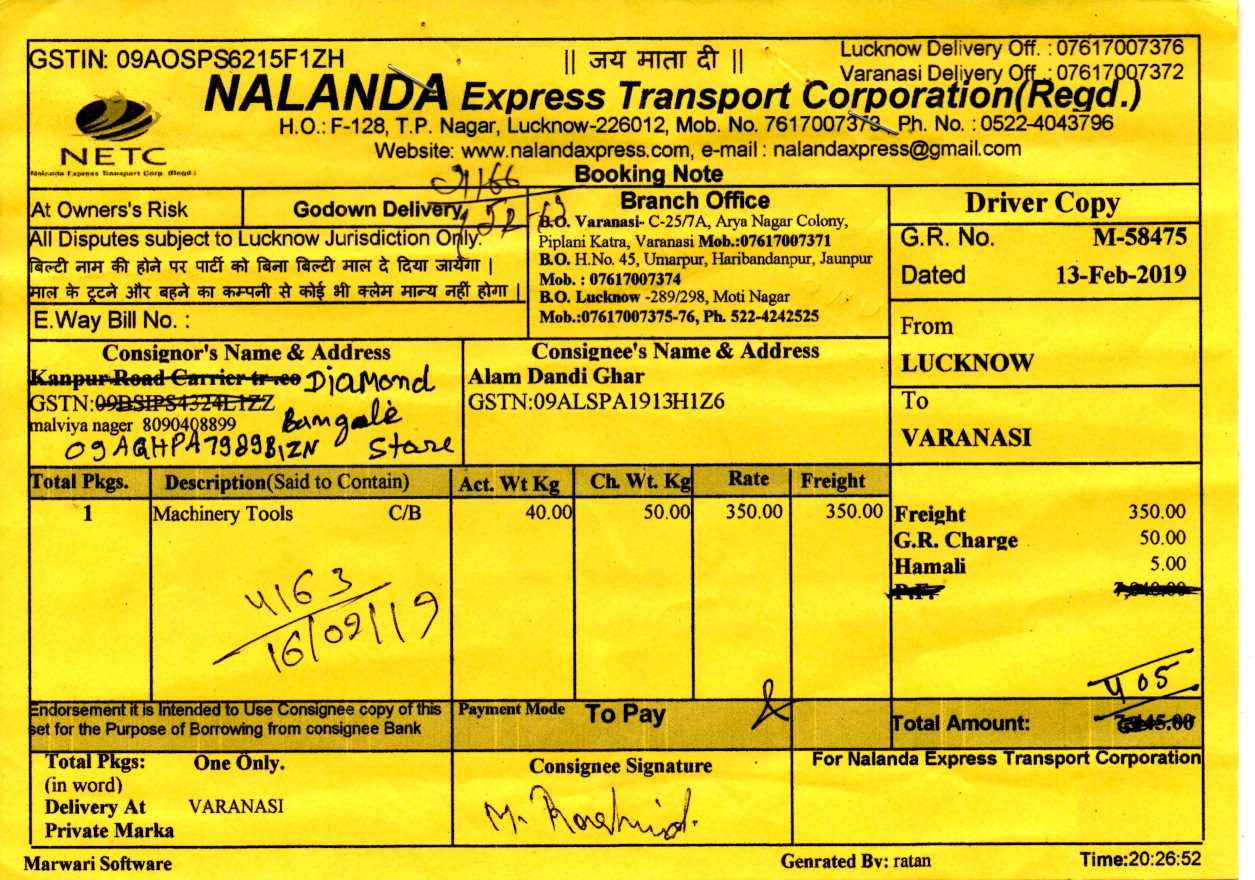 GSTIN: 09AOSPS6215F1ZH
|| जय माता दी ||
Lucknow Delivery Off. : 07617007376
Varanasi Delivery Off. : 07617007372
NALANDA Express Transport Corporation(Regd.)
H.O.: F-128, T.P. Nagar, Lucknow-226012, Mob. No. 7617007373, Ph. No. : 0522-4043796
Website: www.nalandaxpress.com, e-mail : nalandaxpress@gmail.com
NETC
Nalanda Express Transport Corp. (Regd.)
Booking Note
At Owners's Risk
Godown Delivery
All Disputes subject to Lucknow Jurisdiction Only.
बिल्टी नाम की होने पर पार्टी को बिना बिल्टी माल दे दिया जायेगा |
माल के टूटने और बहने का कम्पनी से कोई भी क्लेम मान्य नहीं होगा |
E.Way Bill No. :
Branch Office
B.O. Varanasi- C-25/7A, Arya Nagar Colony,
Piplani Katra, Varanasi Mob.:07617007371
B.O. H.No. 45, Umarpur, Haribandanpur, Jaunpur
Mob. : 07617007374
B.O. Lucknow -289/298, Moti Nagar
Mob.:07617007375-76, Ph. 522-4242525
Driver Copy
G.R. No. M-58475
Dated 13-Feb-2019
From
LUCKNOW
To
VARANASI
Consignor's Name & Address
Kanpur Road Carrier tr .co Diamond
GSTN:09BSIPS4324L1ZZ Bangale
malviya nager 8090408899
09AQHPA7989B1ZN Stare
Consignee's Name & Address
Alam Dandi Ghar
GSTN:09ALSPA1913H1Z6
Total Pkgs. Description(Said to Contain) Act. Wt Kg Ch. Wt. Kg Rate Freight
1 Machinery Tools C/B 40.00 50.00 350.00 350.00
4163
16/02/19
Freight 350.00
G.R. Charge 50.00
Hamali 5.00
P.F.
405
Total Amount:
Endorsement it is Intended to Use Consignee copy of this
set for the Purpose of Borrowing from consignee Bank
Payment Mode To Pay
Total Pkgs: One Only.
(in word)
Delivery At VARANASI
Private Marka
Consignee Signature
M. Rashid.
For Nalanda Express Transport Corporation
Marwari Software
Genrated By: ratan
Time:20:26:52